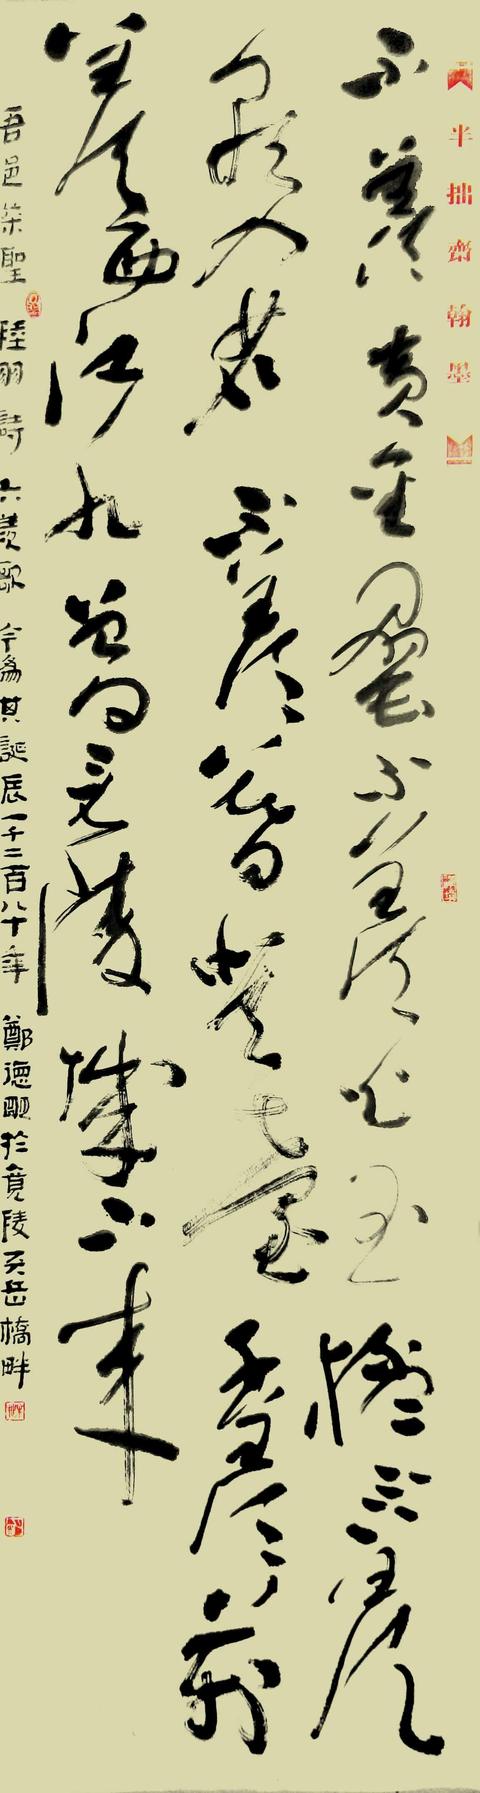 半拙齋翰墨
不羨黄金罍不羨白玉杯不羨
朝入省不羨暮登臺千羨萬
羨西江水曾向竟陵城下來
吾邑茶聖 陸羽詩 六羨歌 今為其誕辰一千二百八十年 鄭德明於竟陵天岳橋畔